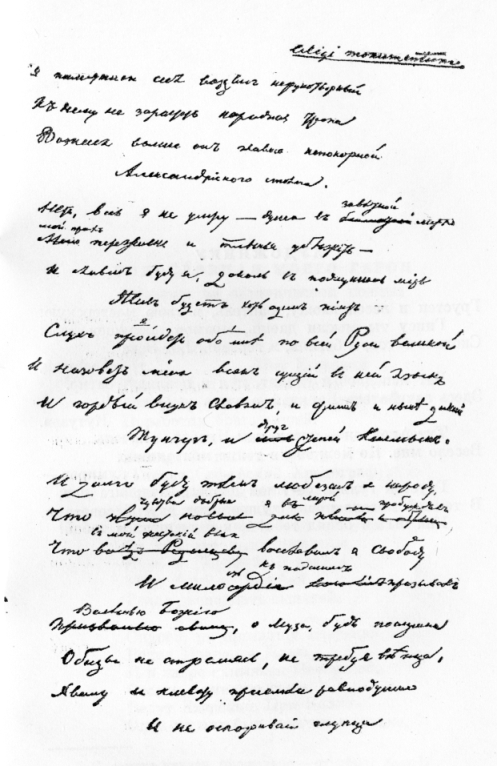 Exegi monumentum
Я памятникъ себѣ воздвигъ нерукотворный
Къ нему не заростетъ народная тропа
Вознесся выше онъ главою непокорной
Александрійскаго столпа.
завѣтной
Нѣтъ, весь я не умру — душа въ лирѣ
мой прахъ
переживетъ и тлѣнья убѣжитъ —
И славенъ буду я, доколь въ подлунномъ мірѣ
Живъ будетъ хоть одинъ піитъ
Слухъ пройдетъ обо мнѣ по всей Руси великой
И назоветъ меня всякъ сущій въ ней языкъ
И гордый внукъ Славянъ, и Финнъ, и нынѣ дикій
другъ
Тунгузъ, и степей Калмыкъ.
И долго буду тѣмъ любезенъ я народу
чувства добрыя я лирой пробуждалъ
Что звуки новые для
въ мой жестокій вѣкъ
Что вслѣдъ Радищеву возславилъ я Свободу
къ падшимъ
И милосердіе призывалъ
Веленью Божію
Призванью своему, о Муза, будь послушна
Обиды не страшась, не требуя вѣнца,
Хвалу и клевету пріемли равнодушно
И не оспоривай глупца